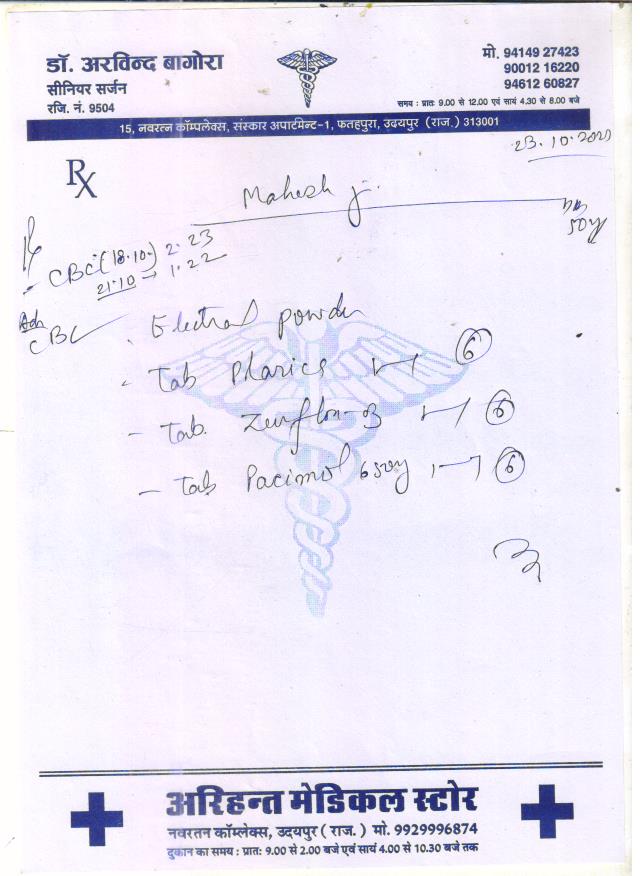 डॉ. अरविन्द बागोरा
सीनियर सर्जन
रजि. नं. 9504
मो. 94149 27423
90012 16220
94612 60827
समय : प्रातः 9.00 से 12.00 एवं सायं 4.30 से 8.00 बजे
15, नवरत्न कॉम्पलेक्स, संस्कार अपार्टमेन्ट-1, फतहपुरा, उदयपुर (राज.) 313001
23.10.2021
Rx
Mahesh j.
50y
CBC (18.10.) 2.23
21.10 → 1.22
Adv
CBC
Electral powder
- Tab Pharics 6
- Tab. 6
- Tab Pacimol 650mg 1-1 6
अरिहन्त मेडिकल स्टोर
नवरतन कॉम्लेक्स, उदयपुर ( राज. ) मो. 9929996874
दुकान का समय : प्रातः 9.00 से 2.00 बजे एवं सायं 4.00 से 10.30 बजे तक